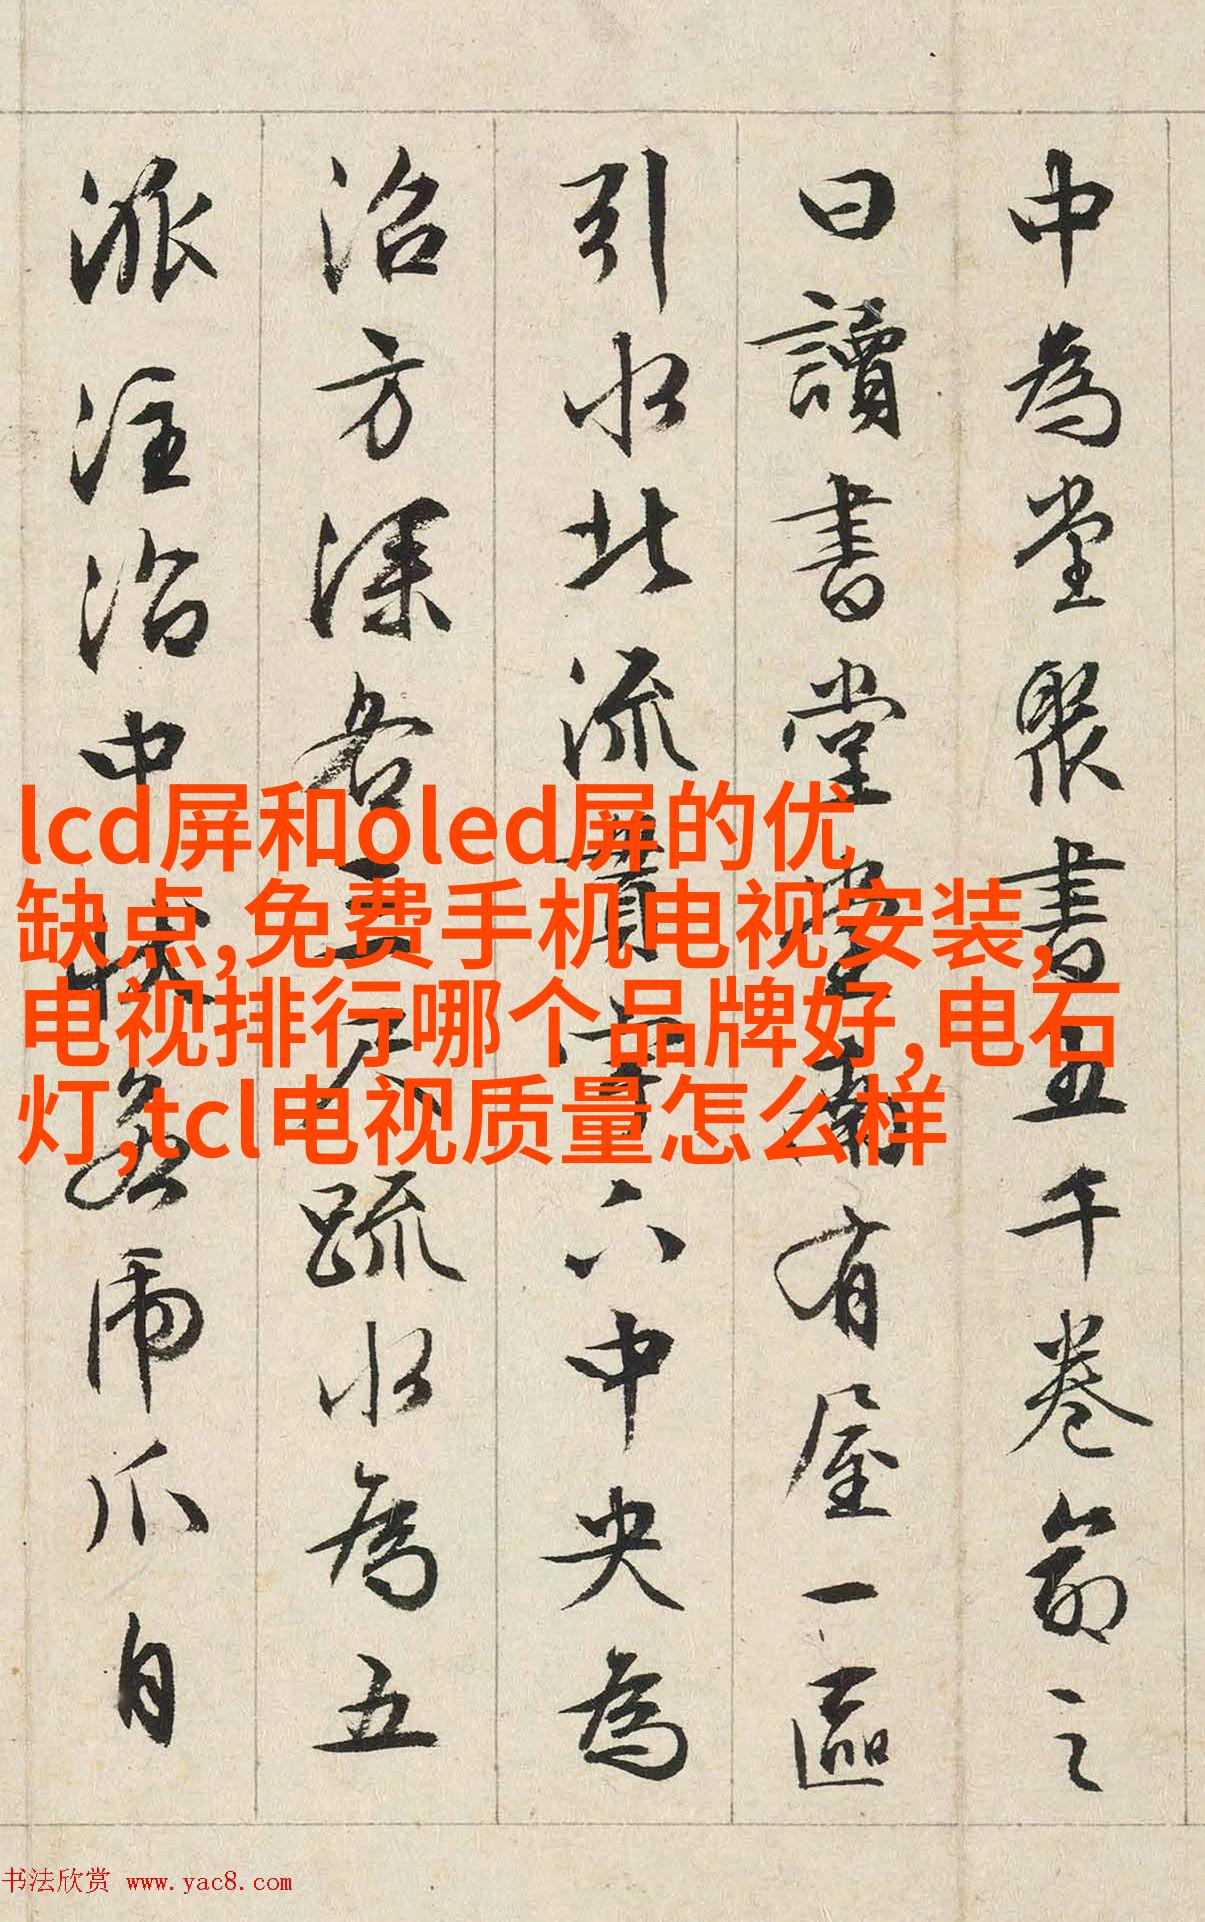 中為堂聚書五千卷命之
曰讀書堂堂南有屋一區
引水北流貫宇下中央為
沼方深各三尺疏水為五
派注沼中狀若虎爪自
lcd屏和oled屏的优
缺点,免费手机电视安装,
电视排行哪个品牌好,电石
灯,tcl电视质量怎么样
书法欣赏 www.yac8.com